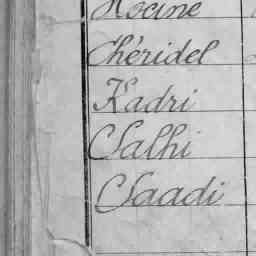 Hocine
Chéridel
Kadri
Salhi
Saadi